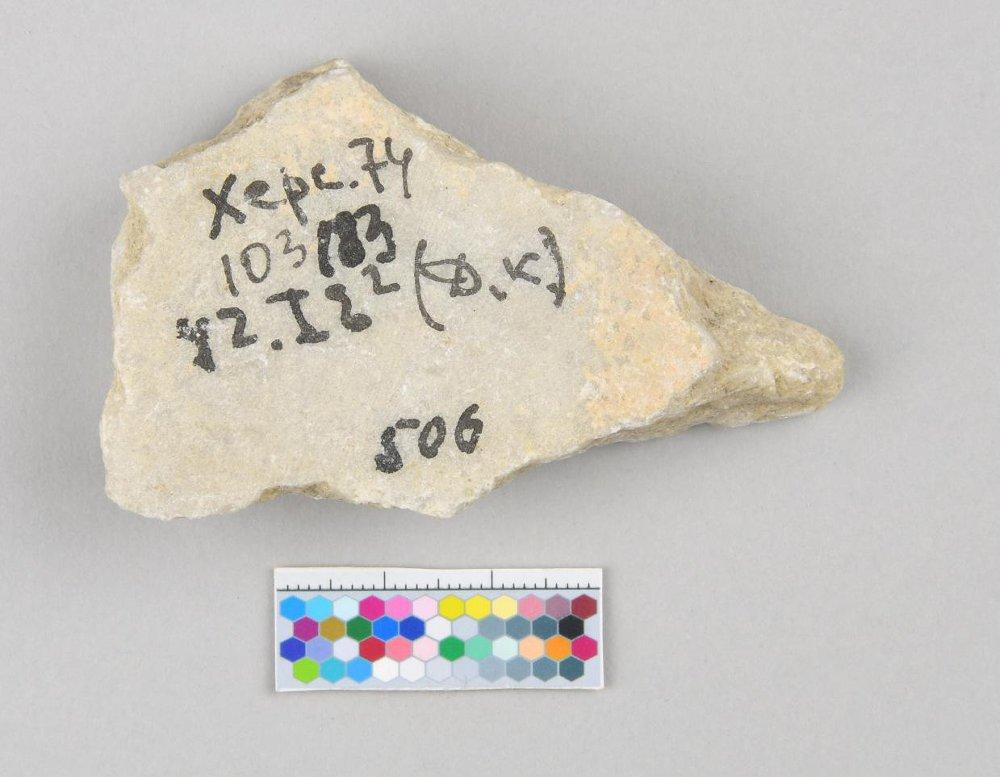 Херс.74
103 183
42.I 8² (D.K)
506